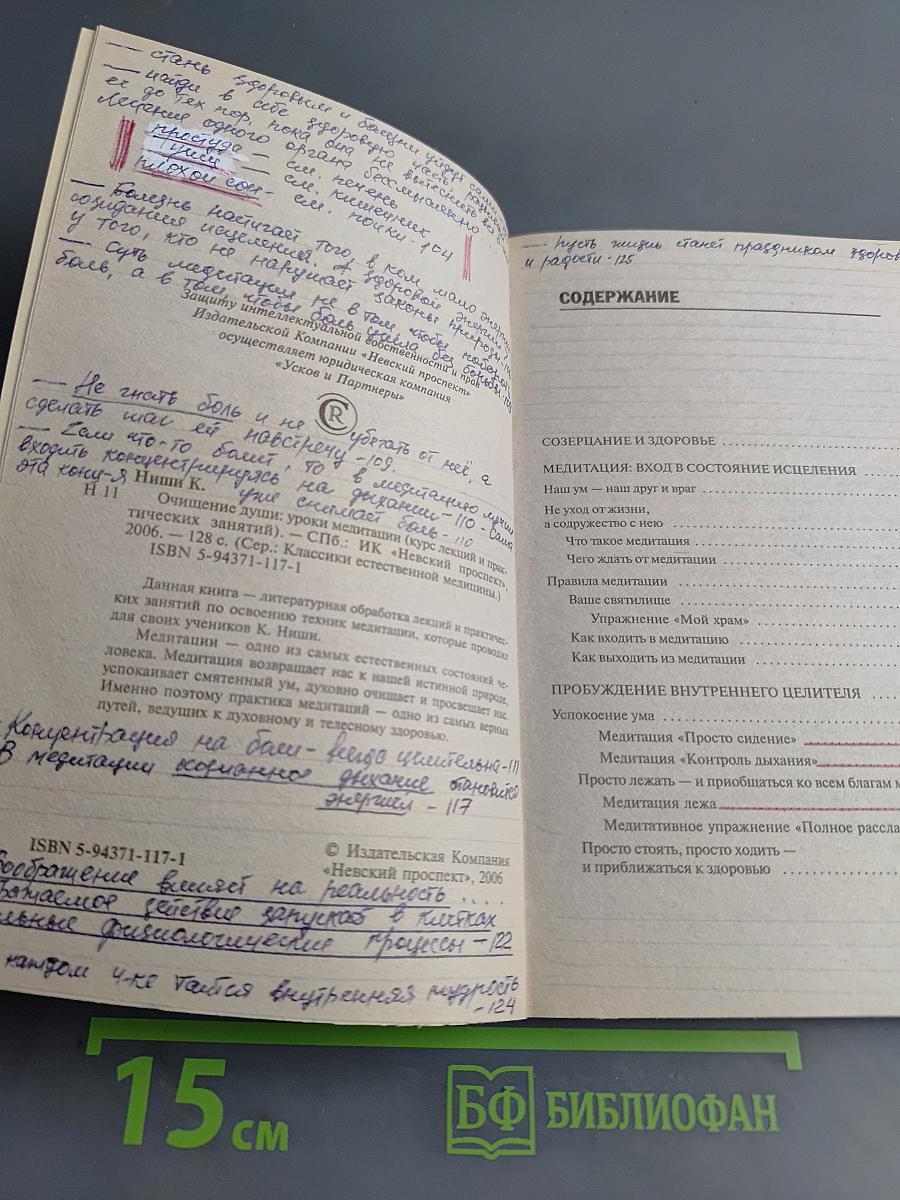 — стань здоровым и болезни уйдут сами
— найди в себе здоровую часть,
её до тех пор, пока она не вытеснит
Лечение одного органа бессмысленно...
простуда — см. печень
см. кишечник
плохой сон — см. почки - 104
— Болезнь настигает того, в ком мало энергии
созидания исцеления. А здоровой энергии
у того, кто не нарушает законы природы
— Суть медитации не в том, чтобы побороть
боль, а в том чтобы боль ушла без борьбы
Защиту интеллектуальной собственности и прав
Издательской Компании «Невский проспект»
осуществляет юридическая компания
«Усков и Партнеры»
— Не гнать боль и не убегать от неё, а
сделать шаг ей навстречу - 109.
— Если что-то болит, то в медитацию
входить концентрируясь на дыхании - 110 - Сама
эта конц-я уже снимает боль - 110
Ниши К.
Н 11
Очищение души: уроки медитации (курс лекций и прак-
тических занятий). — СПб.: ИК «Невский проспект»,
2006. — 128 с. (Сер.: Классики естественной медицины.)
ISBN 5-94371-117-1
Данная книга — литературная обработка лекций и практичес-
ких занятий по освоению техник медитации, которые проводил
для своих учеников К. Ниши.
Медитации — одно из самых естественных состояний че-
ловека. Медитация возвращает нас к нашей истинной природе,
успокаивает смятенный ум, духовно очищает и просвещает нас.
Именно поэтому практика медитаций — одно из самых верных
путей, ведущих к духовному и телесному здоровью.
Концентрация на боли - всегда целительна - 111
В медитации осознанное дыхание становится
энергией - 117
ISBN 5-94371-117-1
© Издательская Компания
«Невский проспект», 2006
Воображение влияет на реальность ....
действие запускает в клетках
физиологические процессы - 122
каждом ч-ке таится внутренняя мудрость
- 124
— Пусть жизнь станет праздником здоров
и радости - 125
СОДЕРЖАНИЕ
СОЗЕРЦАНИЕ И ЗДОРОВЬЕ
МЕДИТАЦИЯ: ВХОД В СОСТОЯНИЕ ИСЦЕЛЕНИЯ
Наш ум — наш друг и враг
Не уход от жизни,
а содружество с нею
Что такое медитация
Чего ждать от медитации
Правила медитации
Ваше святилище
Упражнение «Мой храм»
Как входить в медитацию
Как выходить из медитации
ПРОБУЖДЕНИЕ ВНУТРЕННЕГО ЦЕЛИТЕЛЯ
Успокоение ума
Медитация «Просто сидение»
Медитация «Контроль дыхания»
Просто лежать — и приобщаться ко всем благам м
Медитация лежа
Медитативное упражнение «Полное рассла
Просто стоять, просто ходить —
и приближаться к здоровью
15 см
БФ БИБЛИОФАН